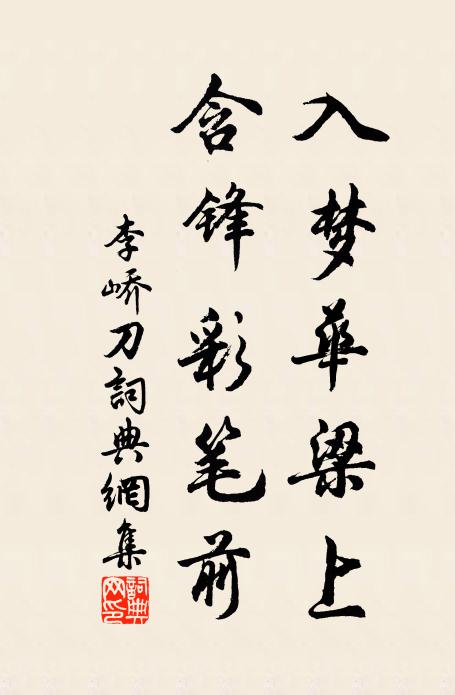 入梦华梁上
含锋彩笔前
李峤刀詞典網集
詞典網印